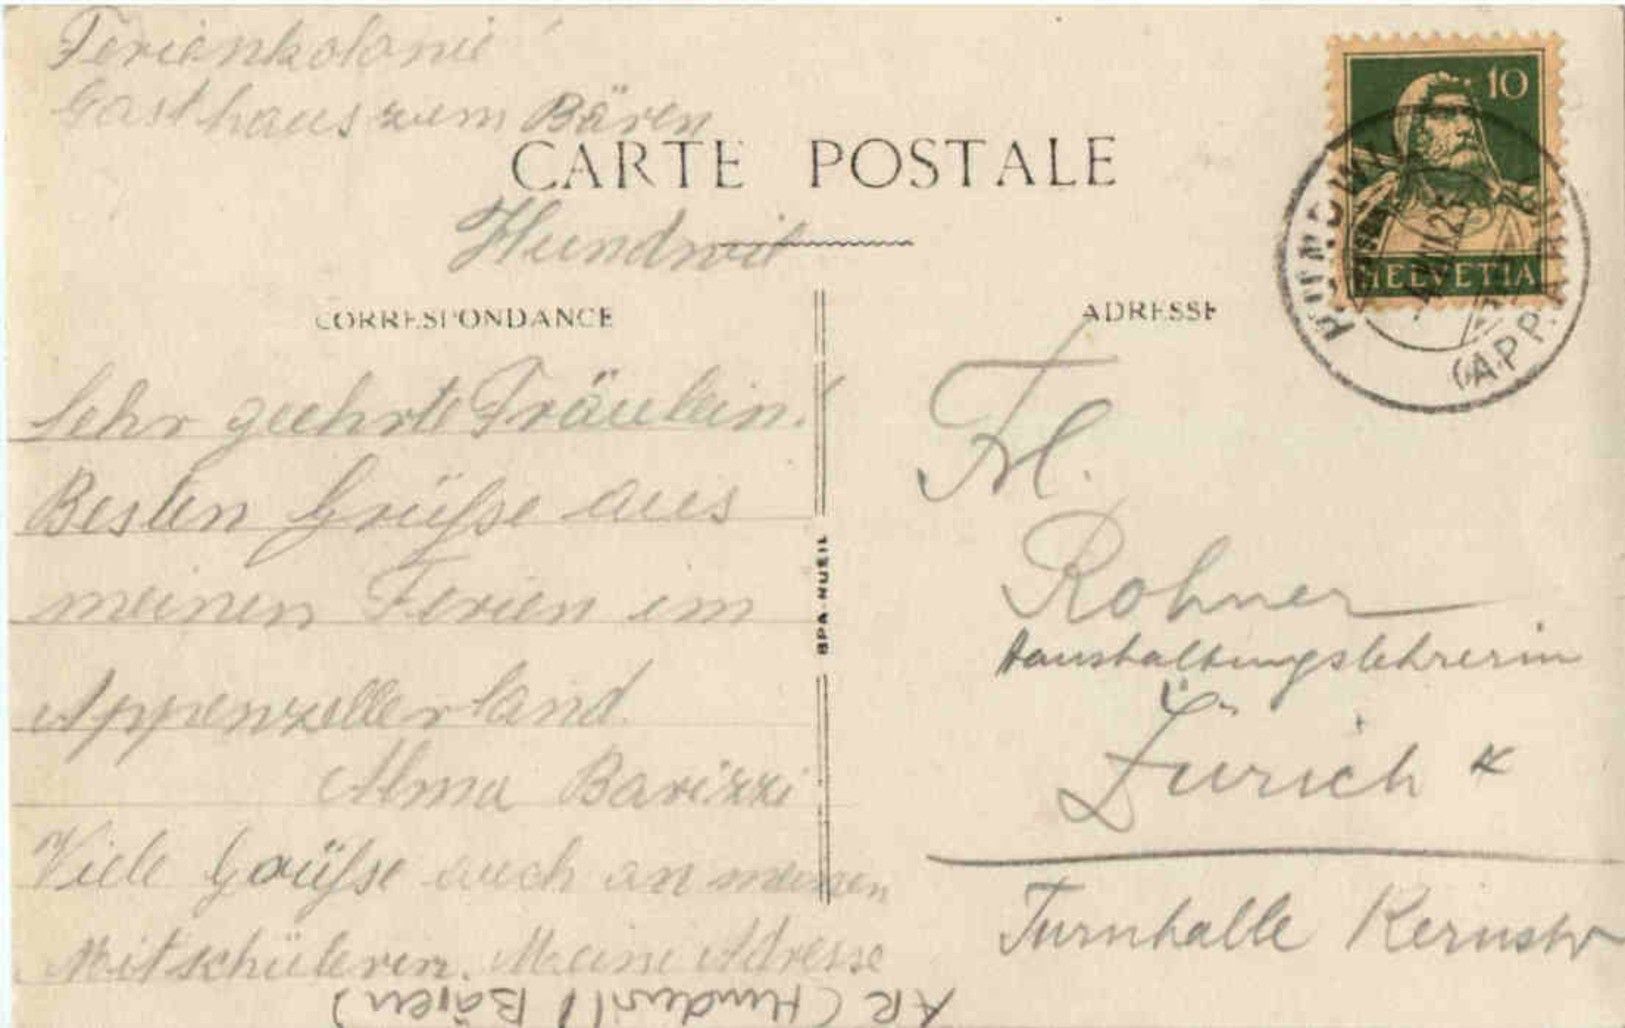 Ferienkolonie
Gasthaus zum Bären
CARTE POSTALE
Hundwil
10
HELVETIA
HUNDWIL
(APP. A.RH.)
CORRESPONDANCE
Sehr geehrte Fräulein!
Besten Grüße aus
meinen Ferien im
Appenzellerland.
Alma Barizzi
Viele Grüße auch an meinen
Mitschülerin. Meine Adresse
AR (Hundwil Bären)
SPA-RUEIL
ADRESSE
Frl.
Rohner
Haushaltungslehrerin
Zürich 4
Turnhalle Kernstr